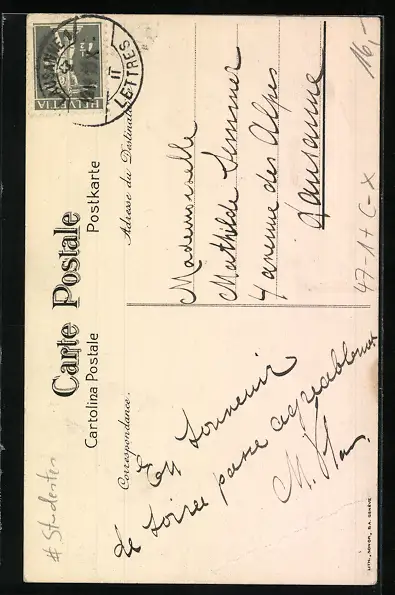 Carte Postale
Cartolina Postale Postkarte
Correspondance.
Adresse du Destinataire.
En souvenir
de soirée passée agréablement
M.
Mademoiselle
Mathilde Semmer
4 avenue des Alpes
Lausanne
HELVETIA
LAUSANNE
LETTRES
II
16,-
47-1+C-X
# Studenten
LITH. "SONOR" S.A. GENÈVE